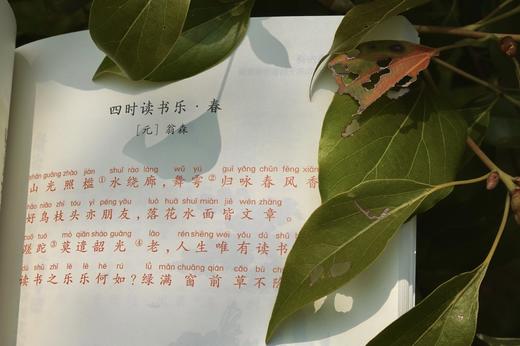 四时读书乐·春
[元] 翁森
shān guāng zhào jiàn shuǐ rào láng wǔ yú guī yǒng chūn fēng
山光照槛①水绕廊,舞雩②归咏春风香
hǎo niǎo zhī tóu yì péng yǒu luò huā shuǐ miàn jiē wén zhāng
好鸟枝头亦朋友,落花水面皆文章。
tuó mò qiǎn sháo guāng lǎo rén shēng wéi yǒu dú shū
蹉跎③莫遣韶光④老,人生唯有读书
dú shū zhī lè lè hé rú lǜ mǎn chuāng qián cǎo bù
读书之乐乐何如?绿满窗前草不